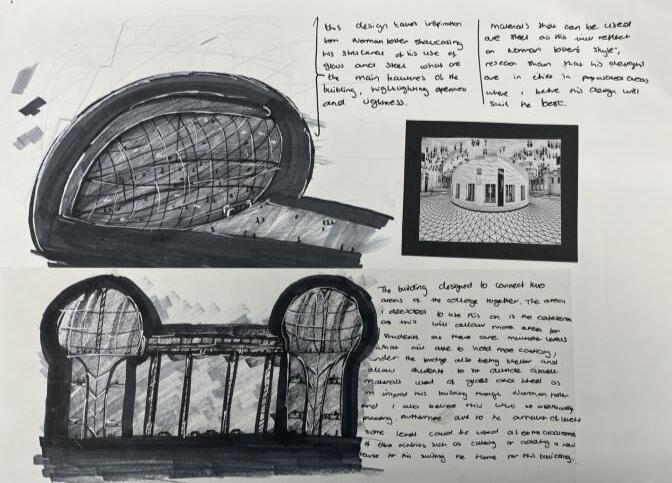 this design takes inspiration
from Norman Foster showcasing
his structures of his use of
glass and steel what are
the main features of the
building, highlighting openness
and lightness.
materials that can be used
are steel as this will reflect
on Norman fosters style,
research than that his designs
are in cities in populated areas
where i belive this design will
suit the best.
The building designed to connect two
areas of the college together. The areas
i decided to use this on is the cafeteria
as this will allow more areas for
students as there are multiple levels
what will able to hold more
under the bridge also being shelter and
allow students to sit outside
materials used of glass and steel as
im this building through Norman foster
and i also believe this will be aesthetically
pleasing furthermore due to the amount of levels
some levels could be used as extra classrooms
of other activities such as or adding a new
for this suiting the theme for this building.